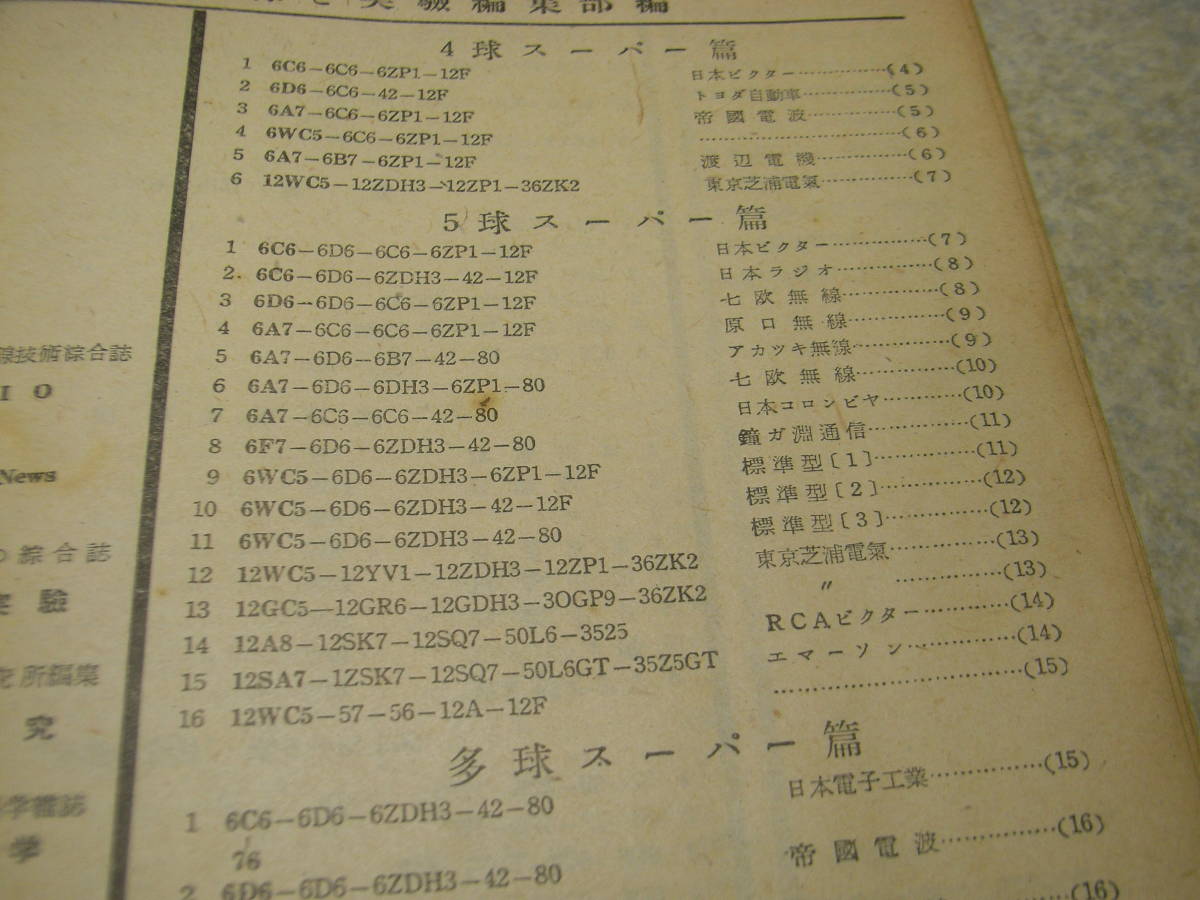 実驗編集部編
4球スーパー篇
1 6C6-6C6-6ZP1-12F 日本ビクター……………(4)
2 6D6-6C6-42-12F トヨダ自動車……………(5)
3 6A7-6C6-6ZP1-12F 帝國電波……………(5)
4 6WC5-6C6-6ZP1-12F ……………………………(6)
5 6A7-6B7-6ZP1-12F 渡辺電機……………(6)
6 12WC5-12ZDH3-12ZP1-36ZK2 東京芝浦電氣……………(7)
5球スーパー篇
1 6C6-6D6-6C6-6ZP1-12F 日本ビクター……………(7)
2 6C6-6D6-6ZDH3-42-12F 日本ラジオ……………(8)
3 6D6-6D6-6C6-6ZP1-12F 七欧無線……………(8)
4 6A7-6C6-6C6-6ZP1-12F 原口無線……………(9)
5 6A7-6D6-6B7-42-80 アカツキ無線……………(9)
6 6A7-6D6-6DH3-6ZP1-80 七欧無線……………(10)
7 6A7-6C6-6C6-42-80 日本コロンビヤ…………(10)
8 6F7-6D6-6ZDH3-42-80 鐘ガ淵通信……………(11)
9 6WC5-6D6-6ZDH3-6ZP1-12F 標準型〔1〕……………(11)
10 6WC5-6D6-6ZDH3-42-12F 標準型〔2〕……………(12)
11 6WC5-6D6-6ZDH3-42-80 標準型〔3〕……………(12)
12 12WC5-12YV1-12ZDH3-12ZP1-36ZK2 東京芝浦電氣……………(13)
13 12GC5-12GR6-12GDH3-3OGP9-36ZK2 〃 ……………(13)
14 12A8-12SK7-12SQ7-50L6-3525 RCAビクター…………(14)
15 12SA7-1ZSK7-12SQ7-50L6GT-35Z5GT エマーソン……………(14)
16 12WC5-57-56-12A-12F ……………………………(15)
多球スーパー篇
1 6C6-6D6-6ZDH3-42-80 日本電子工業……………(15)
76
2 6D6-6D6-6ZDH3-42-80 帝國電波……………(16)
……(16)
線技術綜合誌
IO
News
の綜合誌
実驗
究所編集
究
学雜誌
学